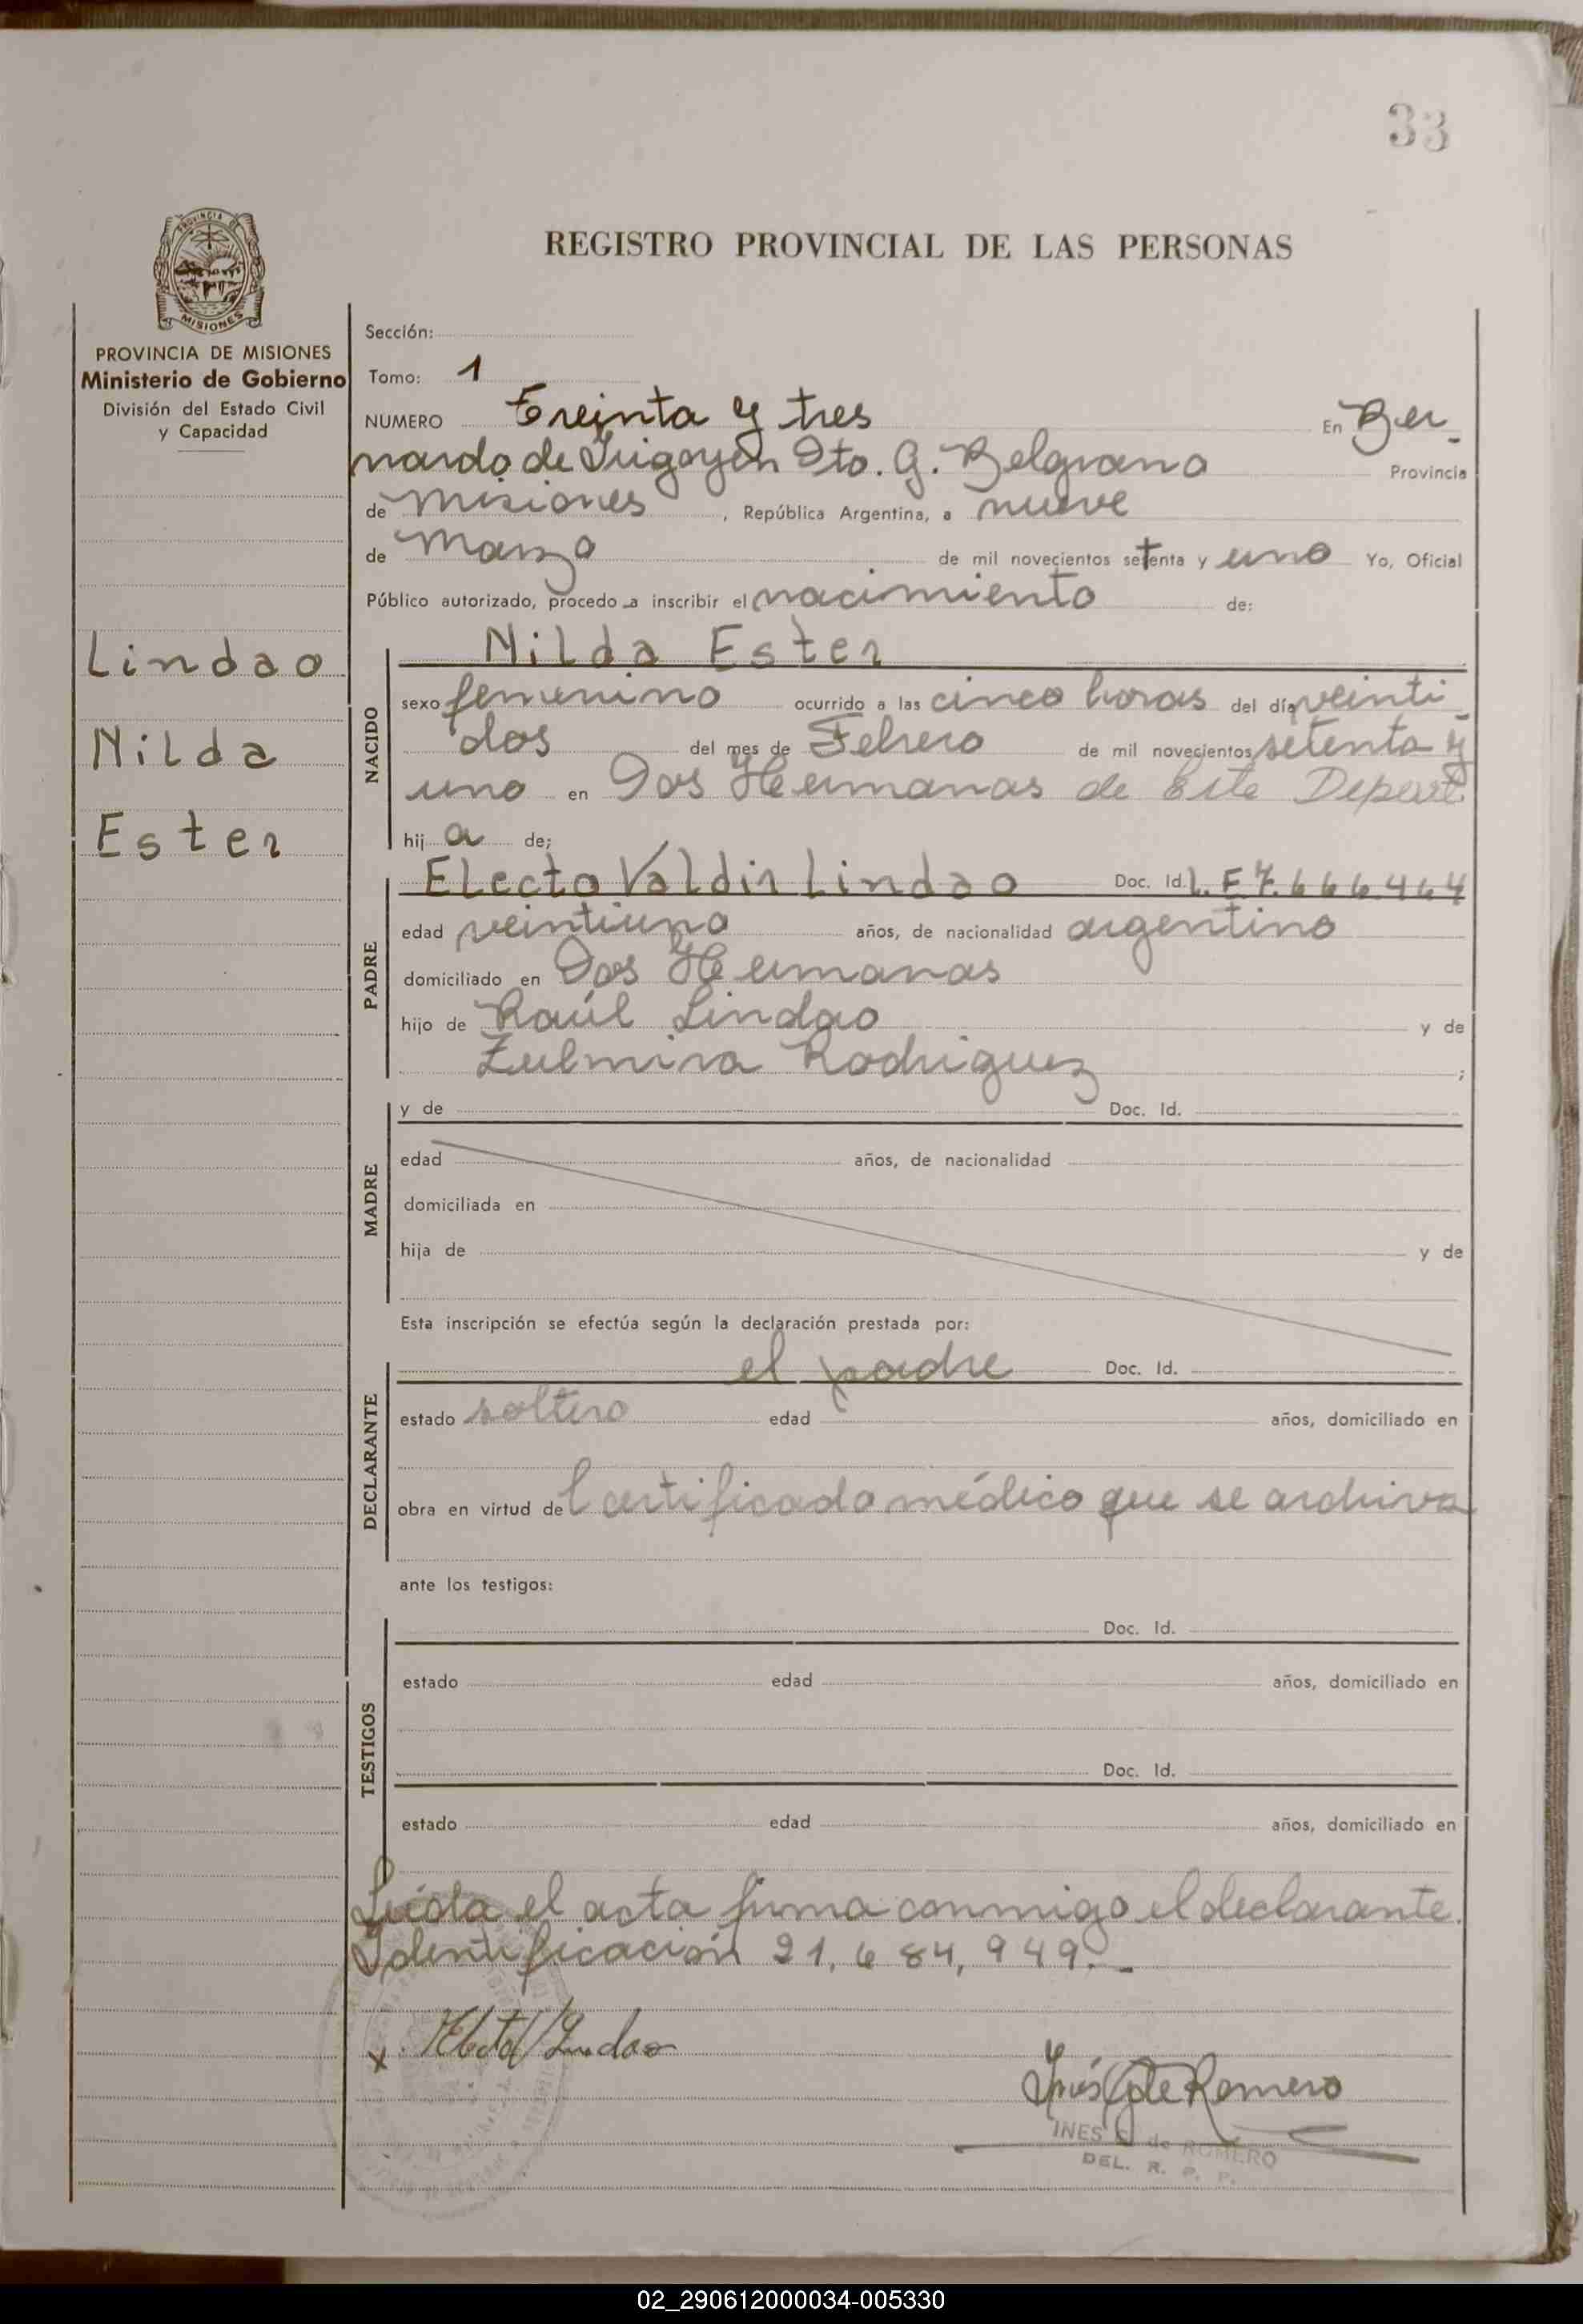 33
PROVINCIA DE
MISIONES
REGISTRO PROVINCIAL DE LAS PERSONAS
PROVINCIA DE MISIONES
Ministerio de Gobierno
División del Estado Civil
y Capacidad
Lindao
Nilda
Ester
Sección:
Tomo: 1
NUMERO Treinta y tres En Ber-
nardo de Irigoyen Dto. G. Belgrano Provincia
de Misiones, República Argentina, a nueve
de Marzo de mil novecientos setenta y uno Yo, Oficial
Público autorizado, procedo a inscribir el nacimiento de:
NACIDO
Nilda Ester
sexo femenino ocurrido a las cinco horas del día veinti-
dos del mes de Febrero de mil novecientos setenta y
uno en Dos Hermanas de Este Depart
hij a de;
PADRE
Electo Valdir Lindao Doc. Id. L.E 7.666.464
edad veintiuno años, de nacionalidad argentino
domiciliado en Dos Hermanas
hijo de Raúl Lindao y de
Zulmira Rodriguez ;
MADRE
y de Doc. Id.
edad años, de nacionalidad
domiciliada en
hija de y de
Esta inscripción se efectúa según la declaración prestada por:
DECLARANTE
el padre Doc. Id.
estado soltero edad años, domiciliado en
obra en virtud del certificado médico que se archiva
ante los testigos:
TESTIGOS
Doc. Id.
estado edad años, domiciliado en
Doc. Id.
estado edad años, domiciliado en
Leída el acta firma conmigo el declarante.
Identificación 21.684,949.-
x Electo V Lindao
Inés G de Romero
INES G de ROMERO
DEL. R. P. P.
02_290612000034-005330